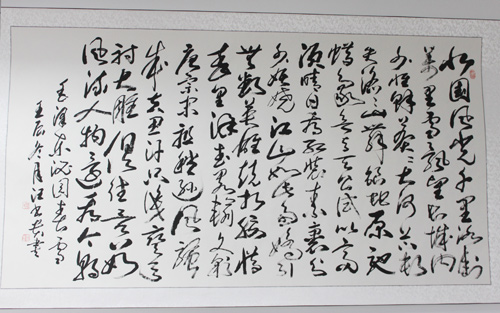 北国风光千里冰封
万里雪飘望长城内
外惟余莽莽大河上下顿
失滔滔山舞银蛇原驰
蜡象欲与天公试比高
须晴日看红装素裹分
外妖娆江山如此多娇引
无数英雄竞折腰惜
秦皇汉武略输文采
唐宗宋祖稍逊风骚
成吉思汗只识弯弓
射大雕俱往矣数
风流人物还看今朝
毛泽东沁园春雪
壬辰冬月汪书